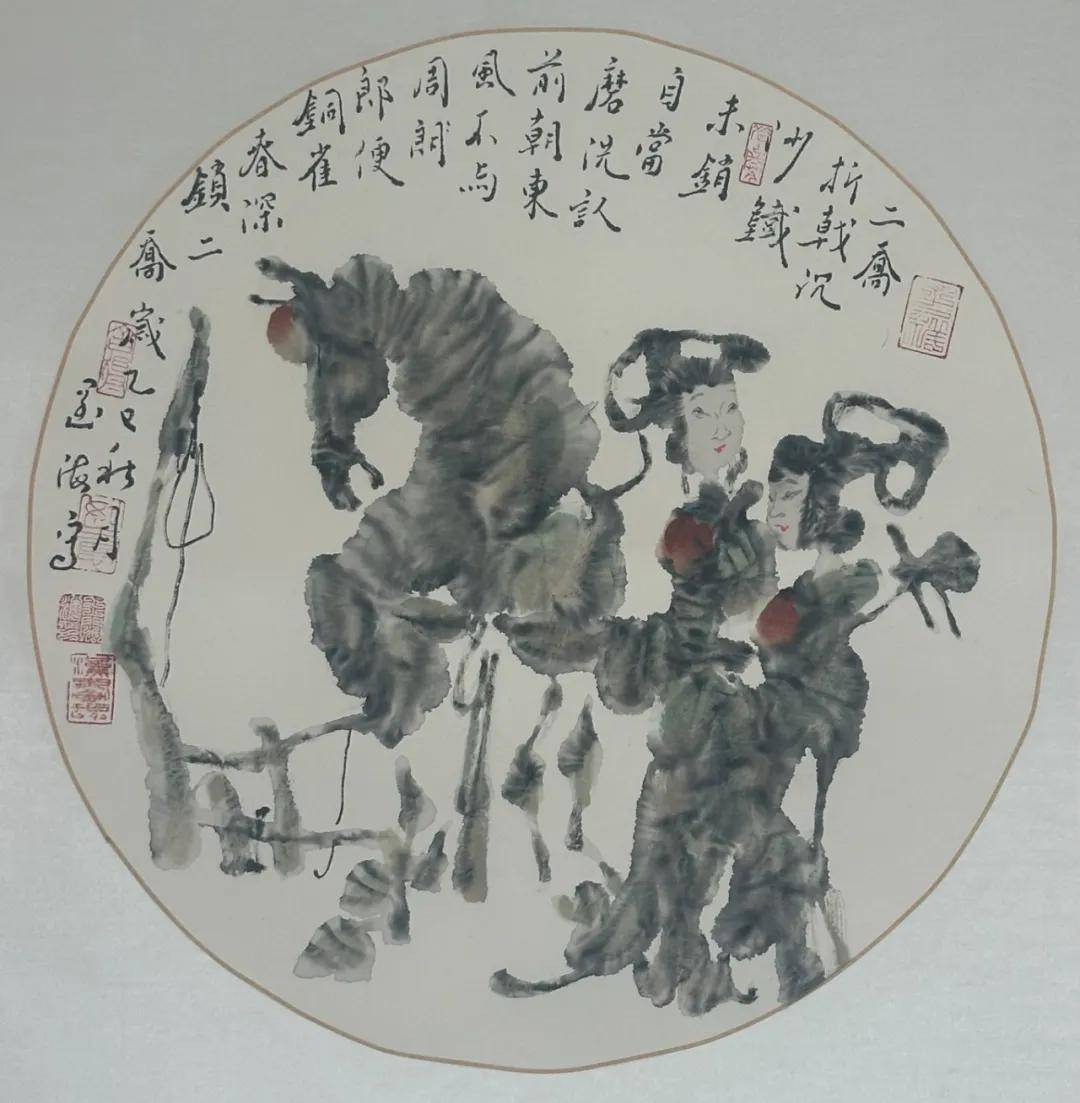 二喬
折戟沉
沙鐵
未銷
自當
磨洗認
前朝東
風不与
周郎
郎便
銅雀
春深
鎖二
喬歲乙巳秋月
墨海寫